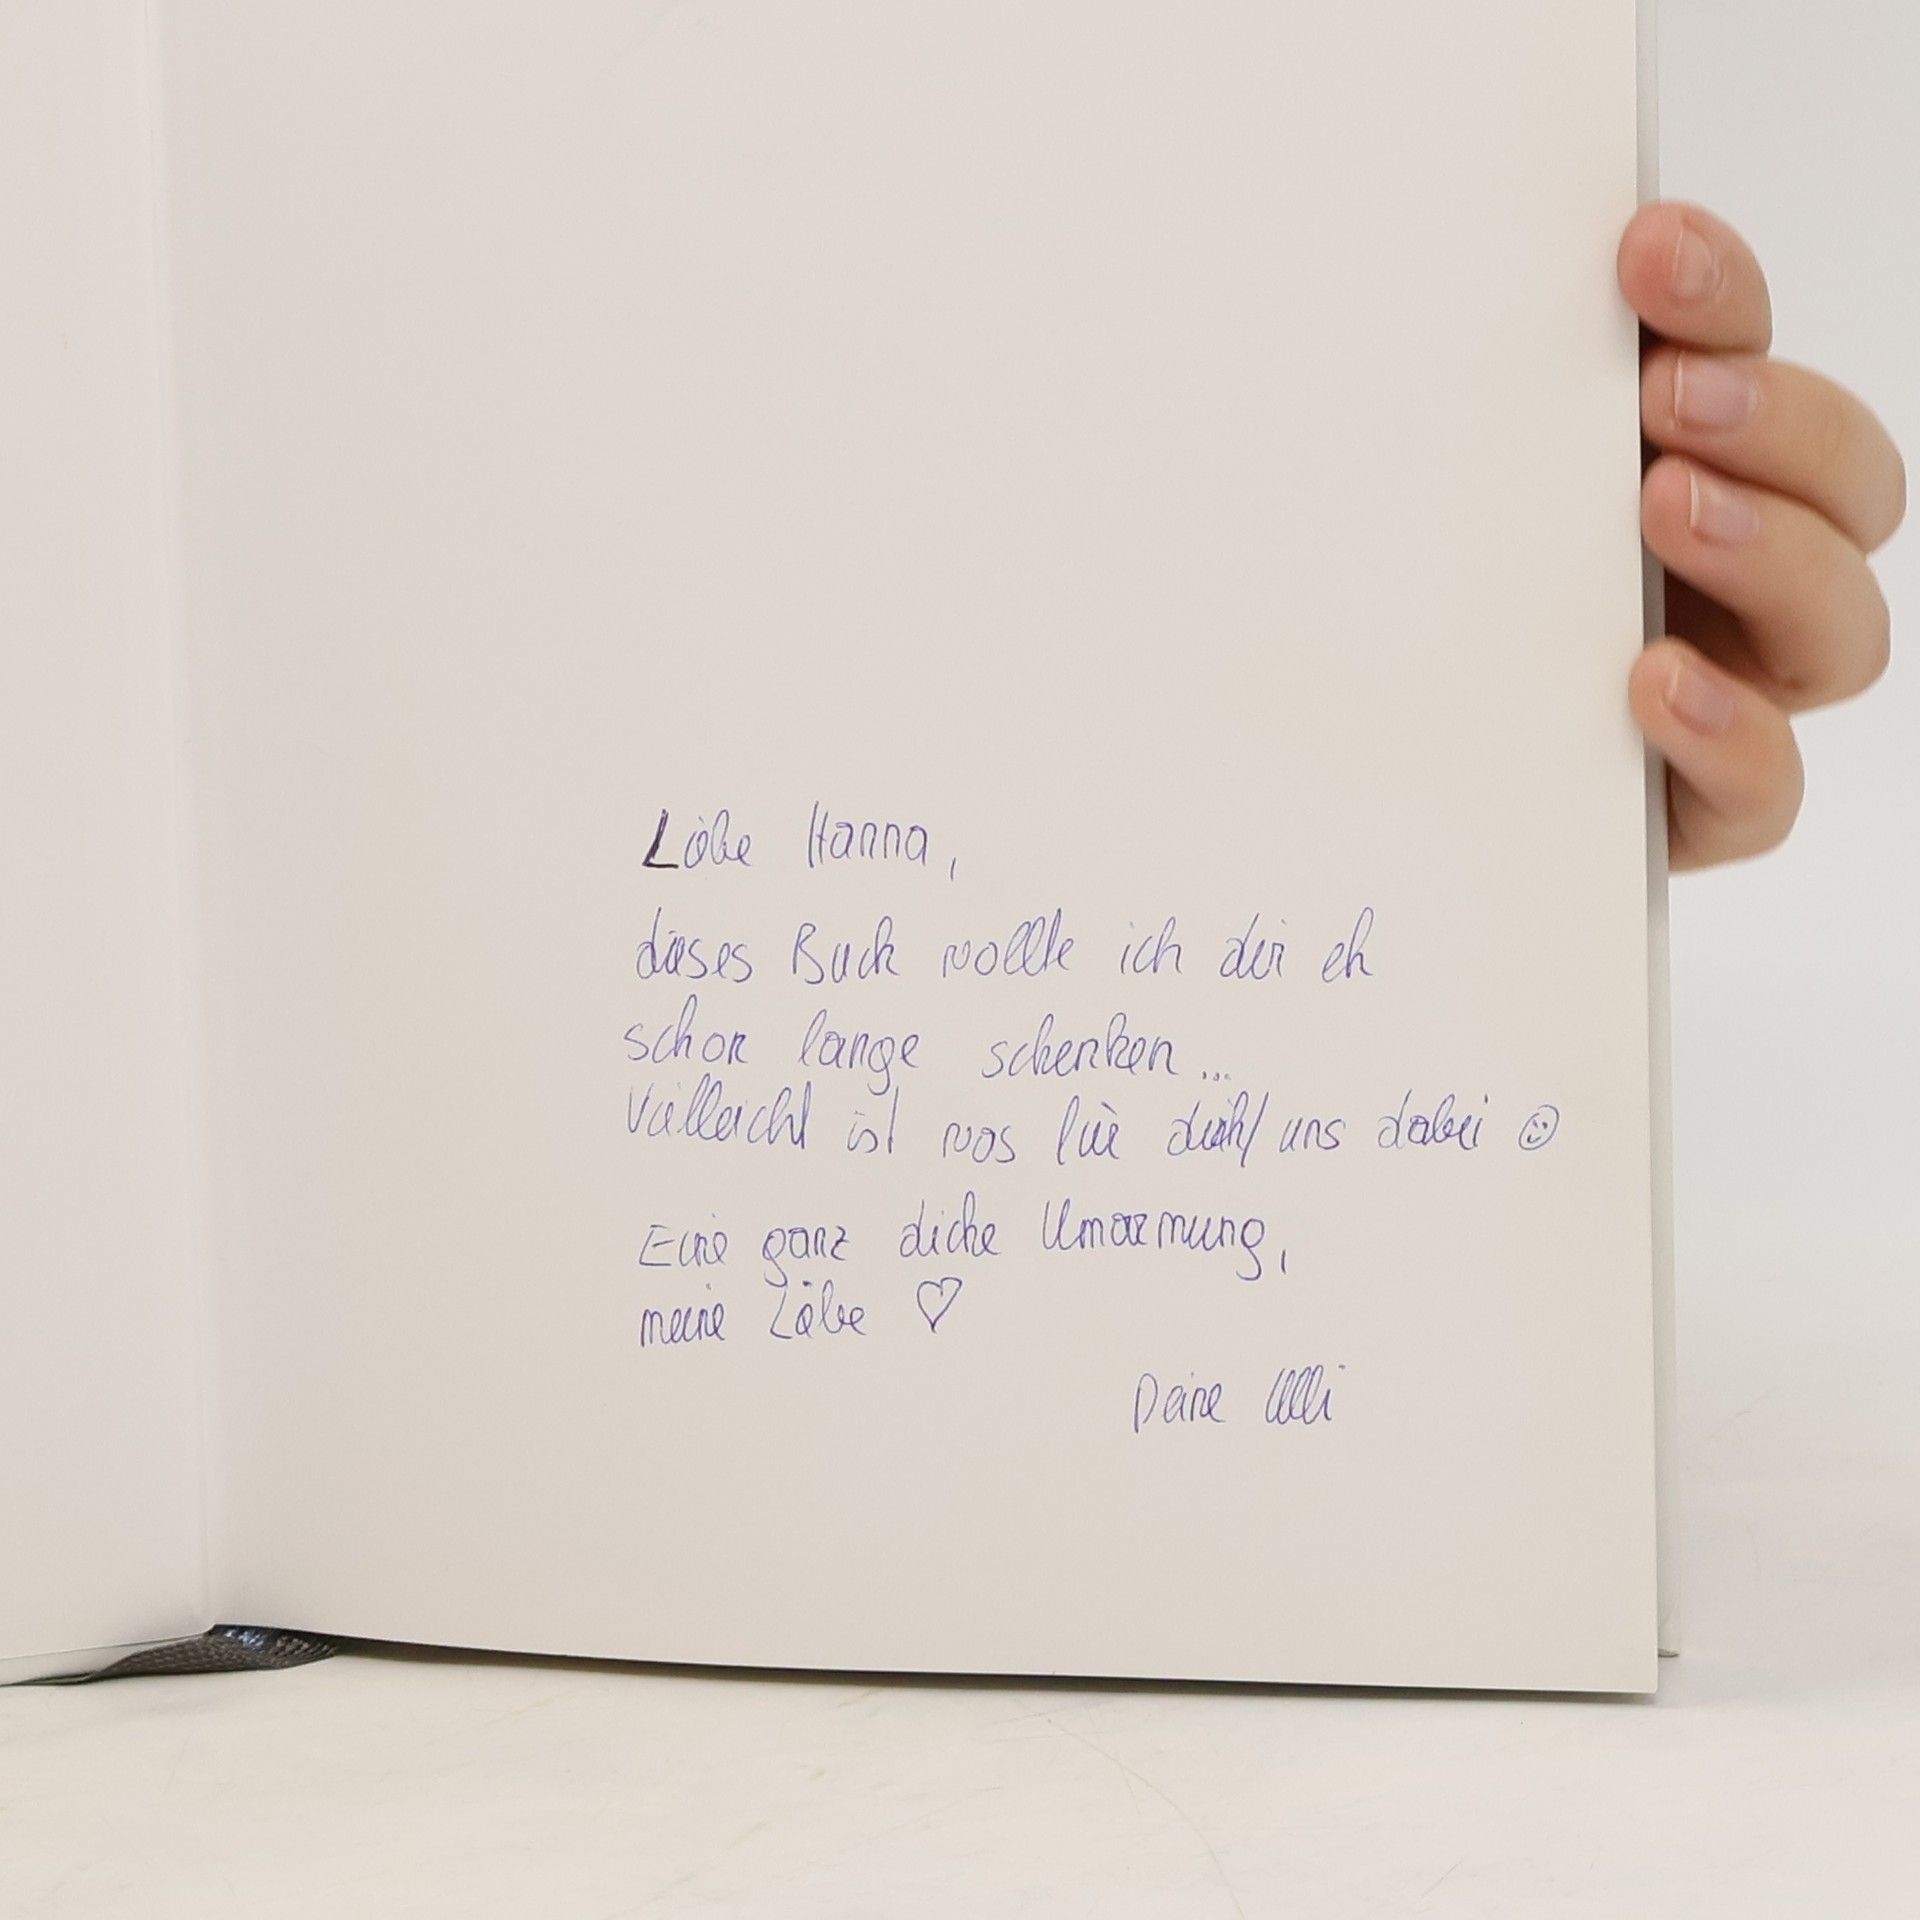 Liebe Hanna,
dieses Buch wollte ich dir eh
schon lange schenken...
Vielleicht ist was für dich/uns dabei ☺
Eine ganz dicke Umarmung,
meine Liebe ♡
Deine Ulli